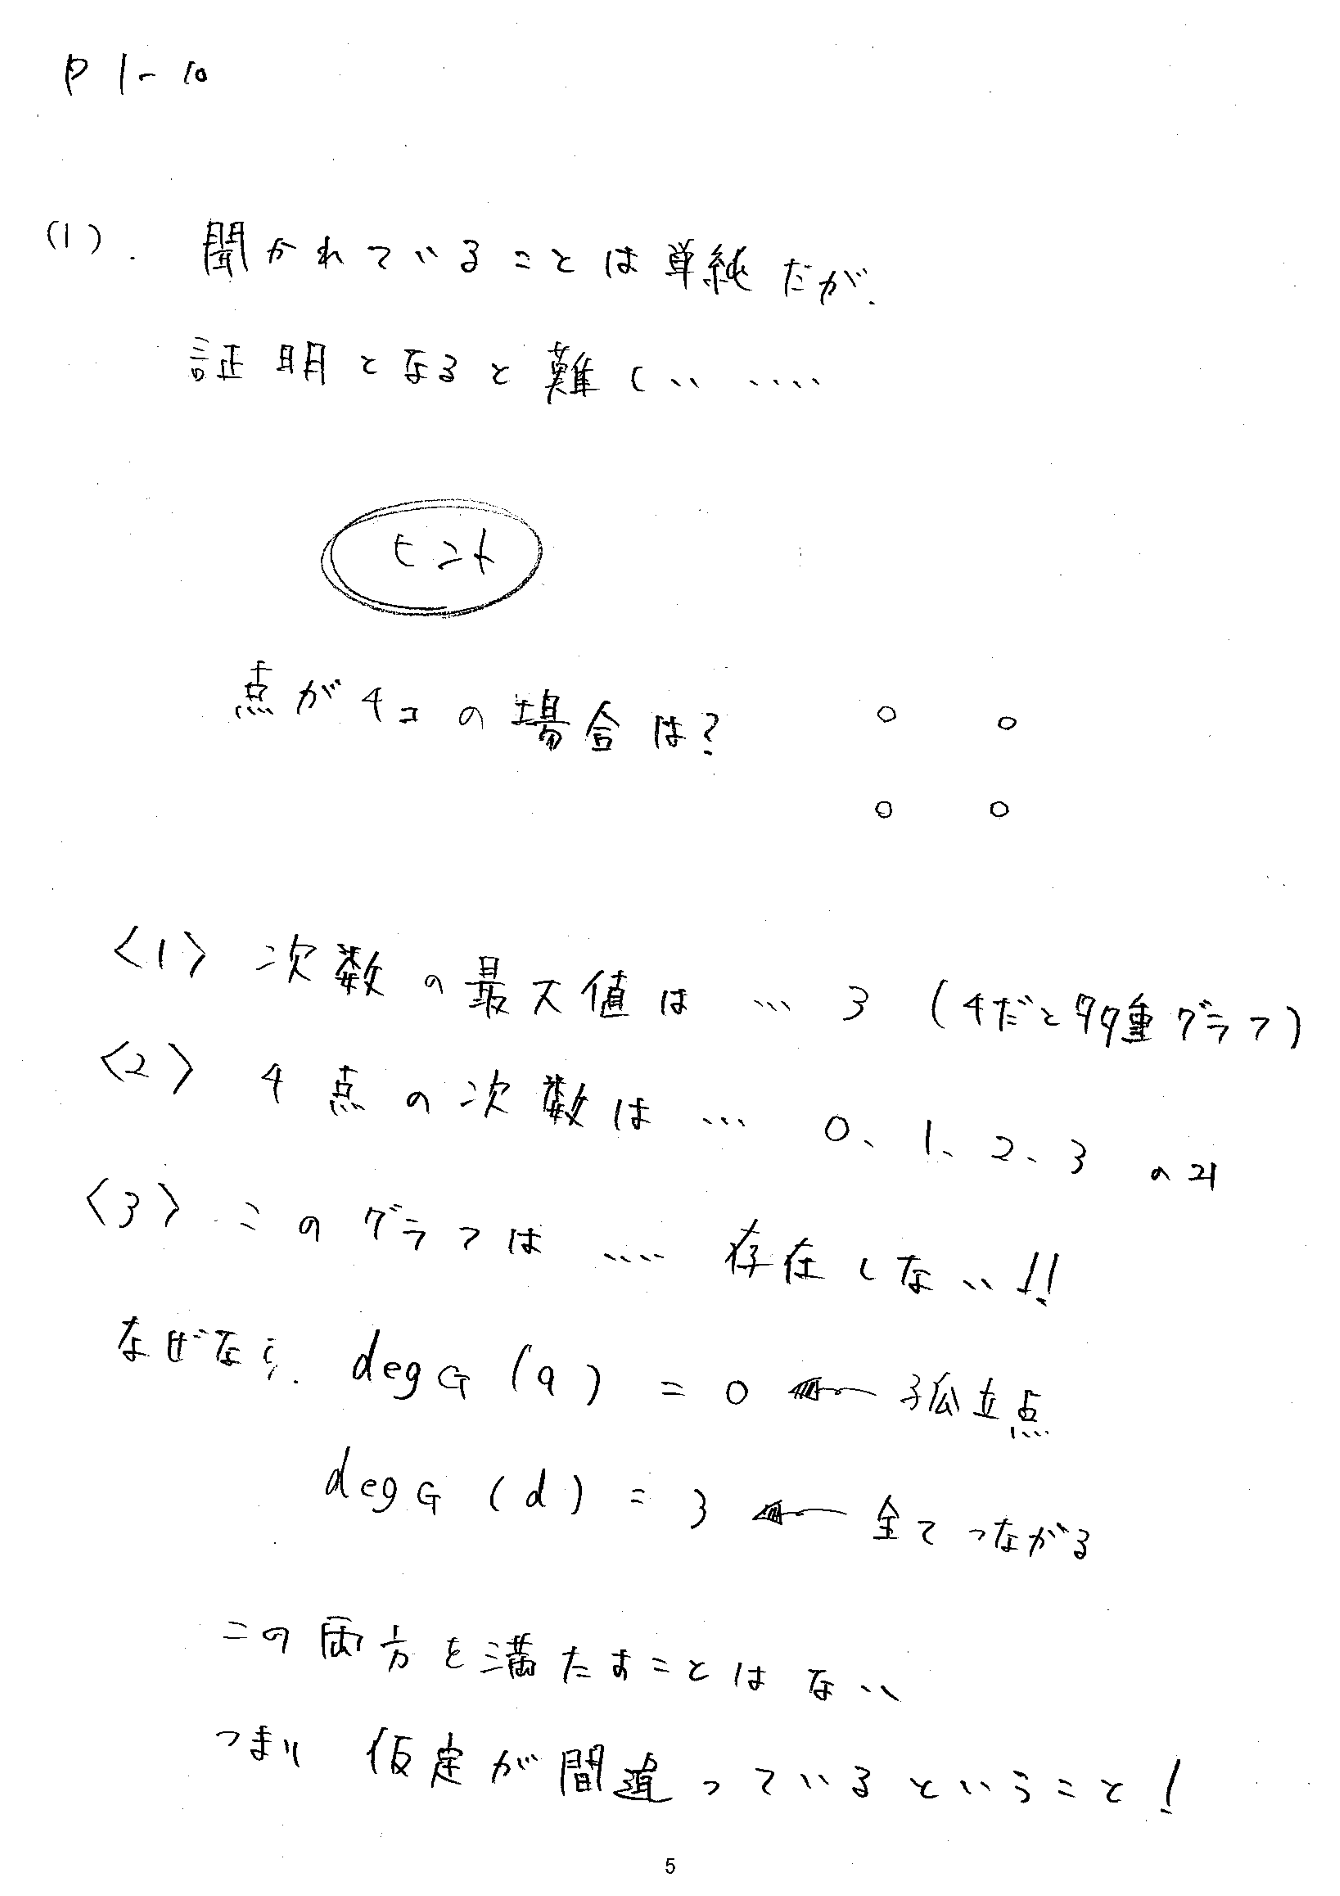 P 1-10
(1). 聞かれていることは単純だが.
証明となると難しい ....
ヒント
点が4コの場合は?
<1> 次数の最大値は … 3 (4だと多重グラフ)
<2> 4点の次数は … 0、1、2、3 の
<3> このグラフは .... 存在しない!!
なぜなら. deg G (a) = 0 ← 孤立点
deg G (d) = 3 ← 全てつながる
この両方を満たすことはない
つまり 仮定が間違っているということ!
5